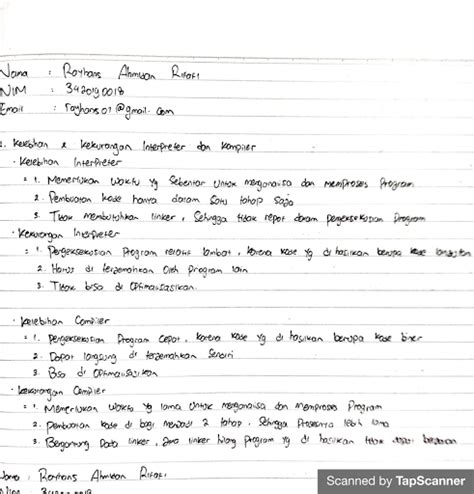 Nama : Rayhans Ahmidan Rifaki
NIM : 3420190018
Email : rayhans07@gmail.com
1. Kelebihan & Kekurangan Interpreter dan Kompiler
· Kelebihan Interpreter
= 1. Memerlukan Waktu yg Sebentar Untuk menganalisa dan memproses Program
2. Pembuatan kode hanya dalam Satu tahap Saja
3. Tidak membutuhkan linker, Sehingga tidak repot dalam pengeksekusian Program
· Kekurangan Interpreter
= 1. Pengeksekusian Program relatif lambat, karena kode yg di hasilkan berupa kode
2. Harus di terjemahkan Oleh Program lain
3. Tidak bisa di Optimalisasikan.
· Kelebihan Compiler
= 1. Pengeksekusian Program Cepat, karena kode yg di hasilkan berupa kode biner
2. Dapat langsung di terjemahkan Sendiri
3. Bisa di Optimalisasikan
· Kekurangan Compiler
= 1. Memerlukan Waktu yg lama Untuk menganalisa dan memproses Program
2. Pembuatan kode di bagi menjadi 2 tahap, Sehingga Prosesnya lebih lama
3. Bergantung Pada linker, linker hilang Program yg di hasilkan tidak dapat
Nama : Rayhans Ahmidan Rifaki
NIM
Scanned by TapScanner